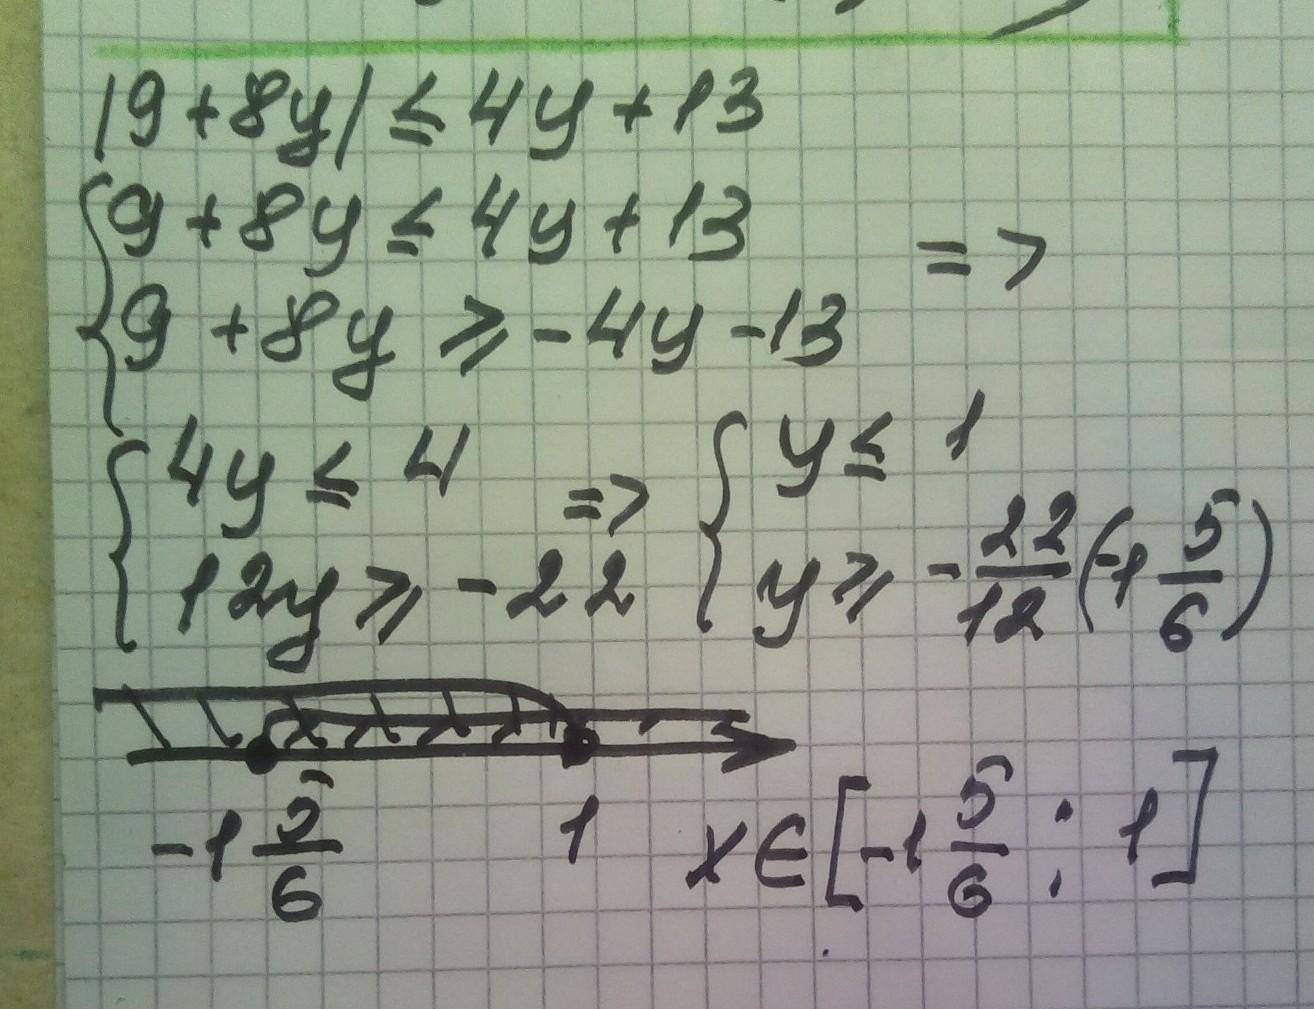 |9+8y| ≤ 4y+13
{ 9+8y ≤ 4y+13
{ 9+8y ≥ -4y-13 =>
{ 4y ≤ 4
{ 12y ≥ -22 =>
{ y ≤ 1
{ y ≥ -22/12 (-1 5/6)
-1 5/6 1
x∈[-1 5/6 ; 1]